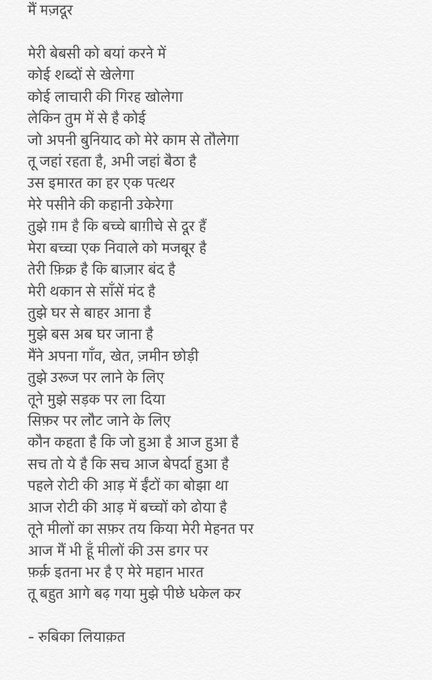 मैं मज़दूर
मेरी बेबसी को बयां करने में
कोई शब्दों से खेलेगा
कोई लाचारी की गिरह खोलेगा
लेकिन तुम में से है कोई
जो अपनी बुनियाद को मेरे काम से तौलेगा
तू जहां रहता है, अभी जहां बैठा है
उस इमारत का हर एक पत्थर
मेरे पसीने की कहानी उकेरेगा
तुझे ग़म है कि बच्चे बाग़ीचे से दूर हैं
मेरा बच्चा एक निवाले को मजबूर है
तेरी फ़िक्र है कि बाज़ार बंद है
मेरी थकान से साँसें मंद है
तुझे घर से बाहर आना है
मुझे बस अब घर जाना है
मैंने अपना गाँव, खेत, ज़मीन छोड़ी
तुझे उरूज पर लाने के लिए
तूने मुझे सड़क पर ला दिया
सिफ़र पर लौट जाने के लिए
कौन कहता है कि जो हुआ है आज हुआ है
सच तो ये है कि सच आज बेपर्दा हुआ है
पहले रोटी की आड़ में ईंटों का बोझा था
आज रोटी की आड़ में बच्चों को ढोया है
तूने मीलों का सफ़र तय किया मेरी मेहनत पर
आज मैं भी हूँ मीलों की उस डगर पर
फ़र्क़ इतना भर है ए मेरे महान भारत
तू बहुत आगे बढ़ गया मुझे पीछे धकेल कर
- रुबिका लियाक़त